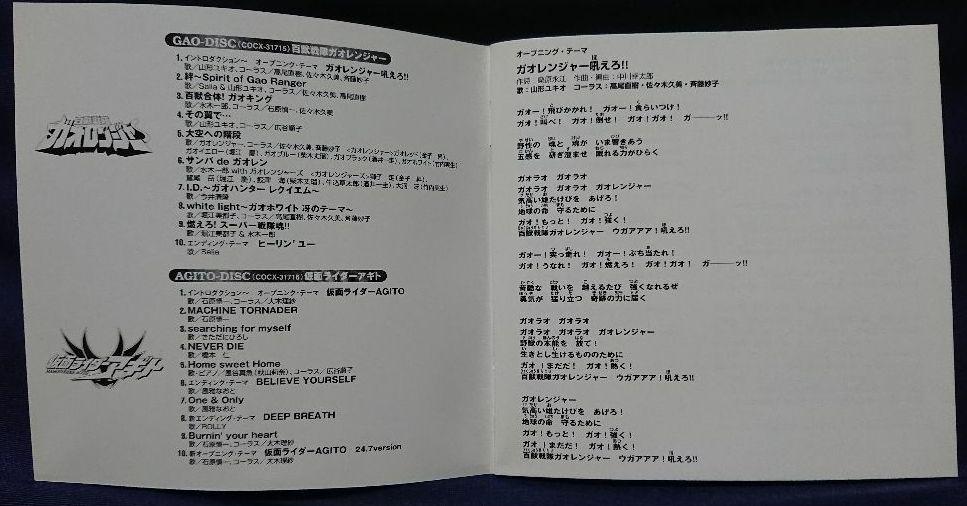 GAO-DISC (COCX-31715) 百獣戦隊ガオレンジャー
1. イントロダクション〜 オープニング・テーマ ガオレンジャー吼えろ!!
歌/山形ユキオ、コーラス/高尾直樹、佐々木久美、斉藤妙子
2. 絆〜Spirit of Gao Ranger
歌/Salia & 山形ユキオ、コーラス/佐々木久美、高尾直樹
3. 百獣合体! ガオキング
歌/水木一郎、コーラス/石原慎一、佐々木久美
4. その翼で…
歌/山形ユキオ、コーラス/広谷順子
5. 大空への階段
歌/ガオレンジャー、コーラス/佐々木久美、斉藤妙子
6. サンバ de ガオレン
歌/水木一郎 with ガオレンジャーズ
7. I.D.〜ガオハンター レクイエム〜
歌/今井清隆
8. white light〜ガオホワイト 冴のテーマ〜
歌/堀江美都子、コーラス/高尾直樹、佐々木久美、斉藤妙子
9. 燃えろ! スーパー戦隊魂!!
歌/堀江美都子 & 水木一郎
10. エンディング・テーマ ヒーリン' ユー
歌/Salia
百獣戦隊
ガオレンジャー
AGITO-DISC (COCX-31716) 仮面ライダーアギト
1. イントロダクション〜 オープニング・テーマ 仮面ライダーAGITO
歌/石原慎一、コーラス/大木理紗
2. MACHINE TORNADER
歌/石原慎一
3. searching for myself
歌/きただにひろし
4. NEVER DIE
歌/橋本 仁
5. Home sweet Home
歌・ピアノ/風谷真魚(秋山莉奈)、コーラス/広谷順子
6. エンディング・テーマ BELIEVE YOURSELF
歌/風雅なおと
7. One & Only
歌/風雅なおと
8. 新エンディング・テーマ DEEP BREATH
歌/ROLLY
9. Burnin' your heart
歌/石原慎一、コーラス/大木理紗
10. 新オープニング・テーマ 仮面ライダーAGITO 24.7version
歌/石原慎一、コーラス/大木理紗
仮面ライダーアギト
オープニング・テーマ
ガオレンジャー吼えろ!!
作詞:桑原永江 作曲・編曲:中川幸太郎
歌:山形ユキオ コーラス:高尾直樹・佐々木久美・斉藤妙子
ガオー!飛びかかれ! ガオー!食らいつけ!
ガオ!叫べ! ガオ!倒せ! ガオ!ガオ! ガ―――ッ!!
野性の 魂と 魂が いま響きあう
五感を 研ぎ澄ませ 眠れる力がひらく
ガオラオ ガオラオ
ガオラオ ガオラオ ガオレンジャー
気高い雄たけびを あげろ!
地球の命 守るために
ガオ!もっと! ガオ!強く!
百獣戦隊ガオレンジャー ウガアアア!吼えろ!!
ガオー!突っ走れ! ガオー!ぶち当たれ!
ガオ!うなれ! ガオ!燃えろ! ガオ!ガオ! ガ―――ッ!!
苛酷な 戦いを 越えるたび 強くなれるぜ
勇気が 猛り立つ 奇跡の力に届く
ガオラオ ガオラオ
ガオラオ ガオラオ ガオレンジャー
野獣の本能を 放て!
生きとし生けるもののために
ガオ!まだだ! ガオ!熱く!
百獣戦隊ガオレンジャー ウガアアア!吼えろ!!
ガオレンジャー
気高い雄たけびを あげろ!
地球の命 守るために
ガオ!もっと! ガオ!強く!
ガオ!まだだ! ガオ!熱く!
百獣戦隊ガオレンジャー ウガアアア!吼えろ!!